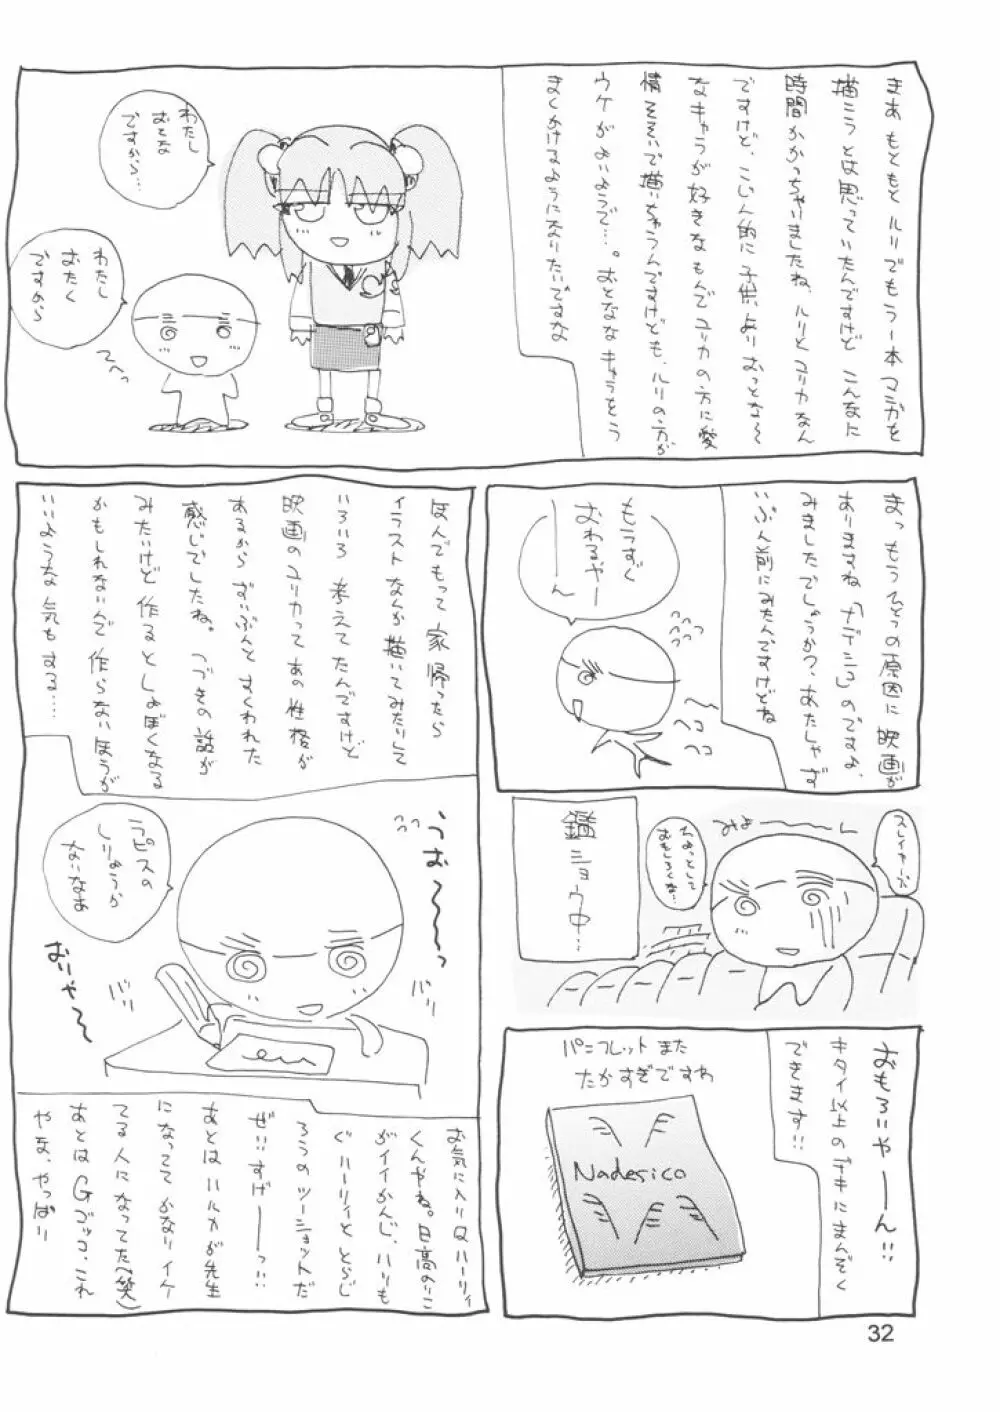 まあ もともと ルリでもう一本マンガを
描こうとは思っていたんですけど こんなに
時間かかっちゃいましたね、ルリとユリカなん
ですけど、こじん的に子供よりおっとな〜
なキャラが好きなもんでユリカの方に愛
情そそいで描いちゃうんですけども、ルリの方が
ウケがよいようで…。おとななキャラをう
まくかけるようになりたいですな
わたし
おとな
ですから…
わたし
おたく
ですから
てへっ
まっ もうひとつの原因に映画が
ありますね「ナデシコ」のですよ、
みましたでしょうかっ、あたしゃず
いぶん前にみたんですけどね
もうすぐ
おわるやー
ーん
ヘコ
ヘコ
スレイヤーズ
みょ〜〜〜ん
ちょっとして
おもしろくな…
鑑ショウ中…
おもろいやーーん!!
キタイ以上のデキにまんぞく
できます!!
パンフレットまた
たかすぎですわ
Nadesico
ほんでもって 家帰ったら
イラストなんか描いてみたりして
いろいろ 考えてたんですけど
映画のユリカって あの性格が
あるから ずいぶんとすくわれた
感じでしたね。つづきの話が
みたいけど 作るとしょぼくなる
かもしれないんで 作らないほうが
いいような気もする……
うお〜〜〜っ
ラピスの
しりょうが
ないなあ
おりゃ〜〜
バリ
バリ
お気に入りはハーリィ
くんやね。日高のりこ
がイイかんじ、ハーリも
ぐ ハーリィととらじ
ろうのツーショットだ
ぜ!!すげーーーっ!!
あとは ハルカが先生
になってて かなりイケ
てる人になってた(笑)
あとはGゴッコ、これ
やな、やっぱり
32